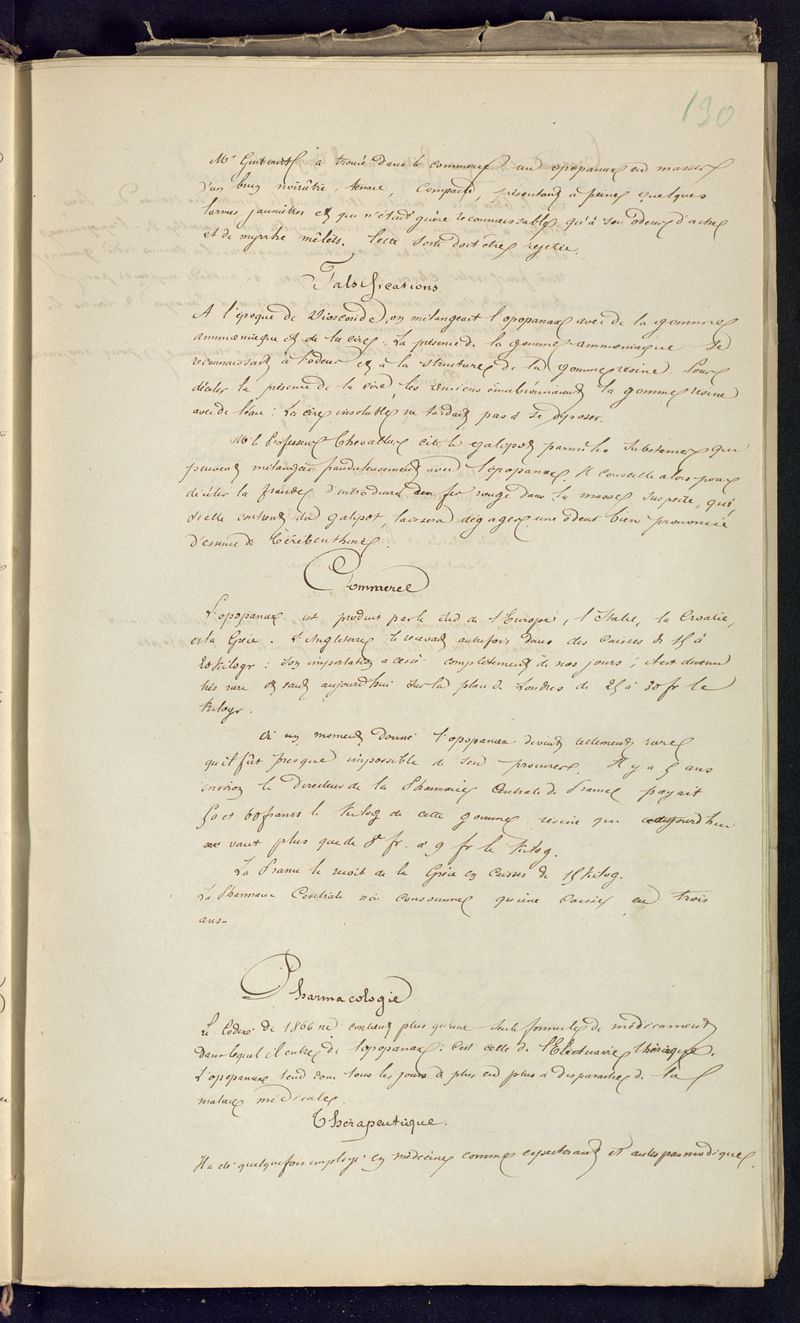 190
Mr Guibourt a trouvé dans le commerce un opopanax en masses
d'un brun noirâtre, tenace, compacte, présentant à peine quelques
larmes jaunâtres et qui n'était guère reconnaissable qu'à son odeur d'ache
et de myrrhe mêlées. Cette sorte doit être rejetée.
Falsifications
A l'époque de Dioscoride, on mélangeait l'opopanax avec de la gomme
ammoniaque et de la cire. La présence de la gomme ammoniaque se
reconnaissait à l'odeur et à la structure de la gomme résine. Pour
déceler la présence de la cire, les anciens émulsionnaient la gomme résine
avec de l'eau : la cire insoluble ne tardait pas à se déposer.
Mr le Professeur Chevallier cite le galipot parmi les substances que
peuvent mélanger frauduleusement avec l'opopanax. Il conseille alors pour
déceler la fraude d'introduire un fer rouge dans la masse suspecte, qui,
si elle contient du galipot, laissera dégager une odeur bien prononcée
d'essence de térébenthine.
Commerce
L'opopanax est produit par le Sud de l'Europe, l'Italie, la Croatie,
et la Grèce. L'Angleterre le recevait autrefois dans des caisses de 15 à
20 kilogr : son importation a cessé complètement de nos jours ; il est devenu
très rare et vaut aujourd'hui sur la place de Londres de 25 à 30 fr le
kilogr.
A un moment donné l'opopanax devint tellement rare
qu'il fût presque impossible de s'en procurer. Il y a 5 ans
environ le directeur de la Pharmacie Centrale de France payait
50 et 60 francs le kilog de cette gomme résine qui aujourd'hui
ne vaut plus que de 8 fr. à 9 fr le kilog.
La France le reçoit de la Grèce en caisses de 15 kilog.
La Pharmacie Centrale n'en consomme qu'une caisse en trois
ans.
Pharmacologie
Le Codex de 1866 ne contient plus qu'une seule formule de médicament
dans lequel il entre de l'opopanax : c'est celle de l'Electuaire thériaque.
L'opopanax tend donc tous les jours de plus en plus à disparaître de la
matière médicale.
Thérapeutique.
Il a été quelquefois employé en médecine comme expectorant et antispasmodique.